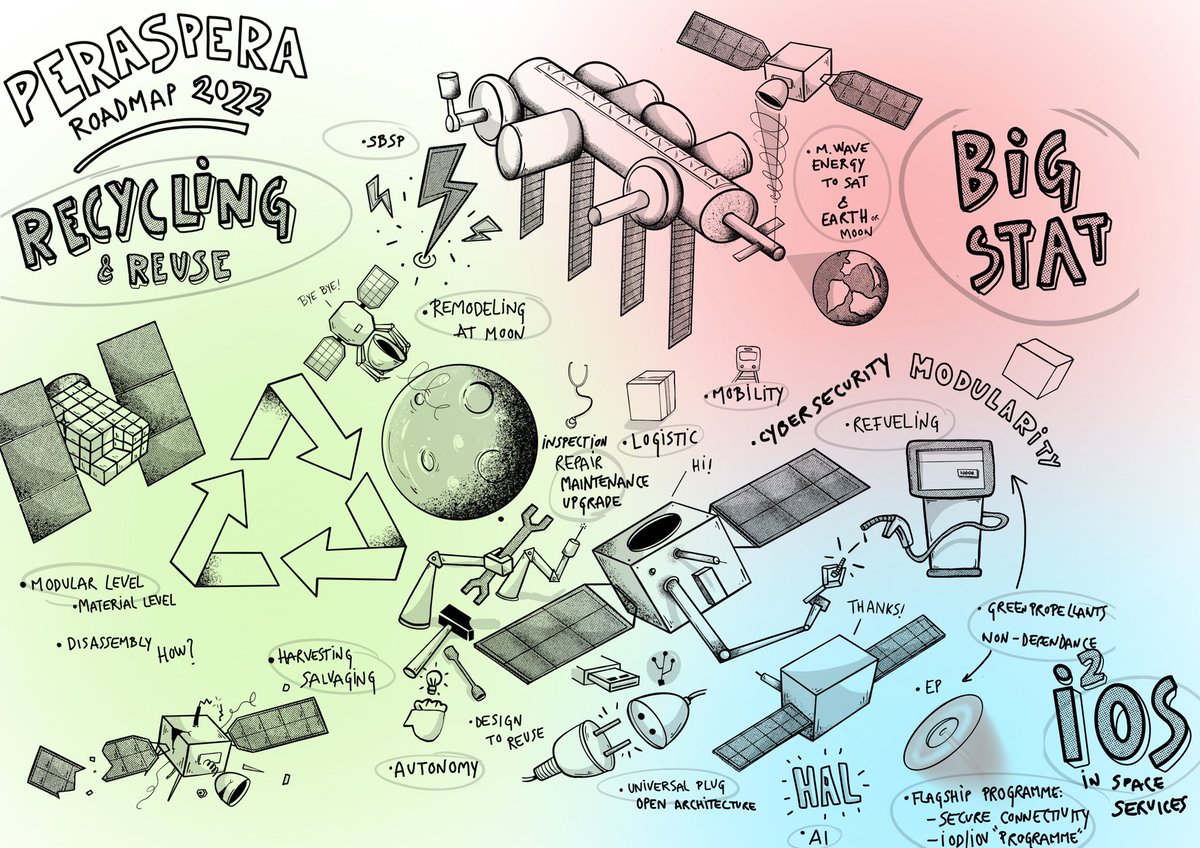 PERASPERA
ROADMAP 2022
RECYCLING
& REUSE
• SBSP
• M. WAVE
ENERGY
TO SAT
&
EARTH OR
MOON
BiG
STAT
BYE BYE!
• REMODELING
AT MOON
• MOBILITY
• CYBERSECURITY
MODULARITY
• REFUELING
INSPECTION
REPAIR
MAINTENANCE
UPGRADE
• LOGISTIC
Hi!
10000
• MODULAR LEVEL
• MATERIAL LEVEL
• DISASSEMBLY HOW?
• HARVESTING
SALVAGING
THANKS!
• GREENPROPELLANTS
NON-DEPENDANCE
• EP
i2OS
IN SPACE
SERVICES
• DESIGN
TO REUSE
• AUTONOMY
• UNIVERSAL PLUG
OPEN ARCHITECTURE
HAL
• AI
• FLAGSHIP PROGRAMME:
- SECURE CONNECTIVITY
- iOD/iOV "PROGRAMME"